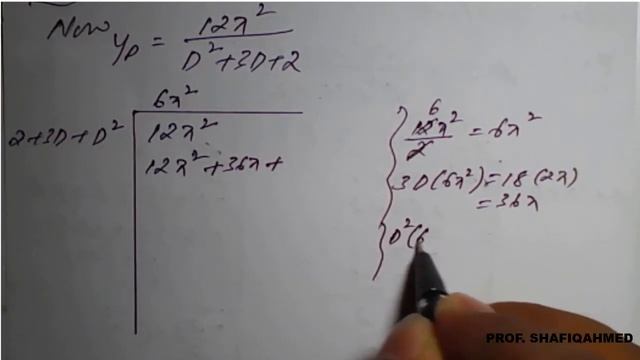 Now yp = 12x² / D²+3D+2
6x²
2+3D+D² | 12x²
12x²+36x+
12x²/2 = 6x²
6
3D(6x²) = 18(2x)
= 36x
D²(6
PROF. SHAFIQAHMED